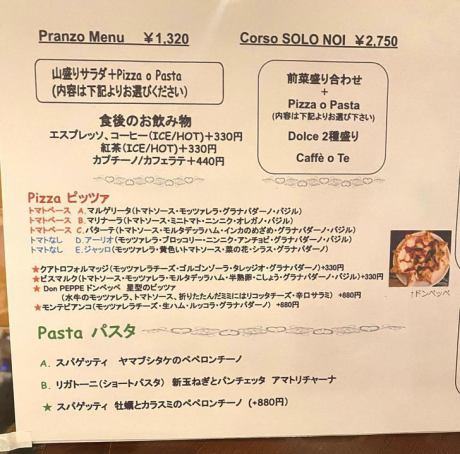 Pranzo Menu ¥1,320
山盛りサラダ+Pizza o Pasta
(内容は下記よりお選びください)
食後のお飲み物
エスプレッソ、コーヒー(ICE/HOT)+330円
紅茶(ICE/HOT)+330円
カプチーノ/カフェラテ+440円
Corso SOLO NOI ¥2,750
前菜盛り合わせ
+
Pizza o Pasta
(内容は下記よりお選び下さい)
Dolce 2種盛り
Caffè o Te
Pizza ピッツァ
トマトベース A.マルゲリータ(トマトソース・モッツァレラ・グラナパダーノ・バジル)
トマトベース B.マリナーラ(トマトソース・ミニトマト・ニンニク・オレガノ・バジル)
トマトベース C.パターテ(トマトソース・モルタデッラハム・インカのめざめ・グラナパダーノ・バジル)
トマトなし D.アーリオ(モッツァレラ・ブロッコリー・ニンニク・アンチョビ・グラナパダーノ・バジル)
トマトなし E.ジャッロ(モッツァレラ・黄色いトマトソース・菜の花・シラス・グラナパダーノ)
★クアトロフォルマッジ(モッツァレラチーズ・ゴルゴンゾーラ・タレッジオ・グラナパダーノ)+330円
★ビスマルク(トマトソース・モッツァレラ・モルタデッラハム・半熟卵・こしょう・グラナパダーノ・バジル)+330円
★ Don PEPPE ドンペッペ 星型のピッツァ
(水牛のモッツァレラ、トマトソース、折りたたんだミミにはリコッタチーズ・辛口サラミ) +880円
★モンテビアンコ(モッツァレラチーズ・生ハム・ルッコラ・グラナパダーノ) +880円
↑ドンペッペ
Pasta パスタ
A. スパゲッティ ヤマブシタケのペペロンチーノ
B. リガトーニ(ショートパスタ) 新玉ねぎとパンチェッタ アマトリチャーナ
★ スパゲッティ 牡蠣とカラスミのペペロンチーノ (+880円)